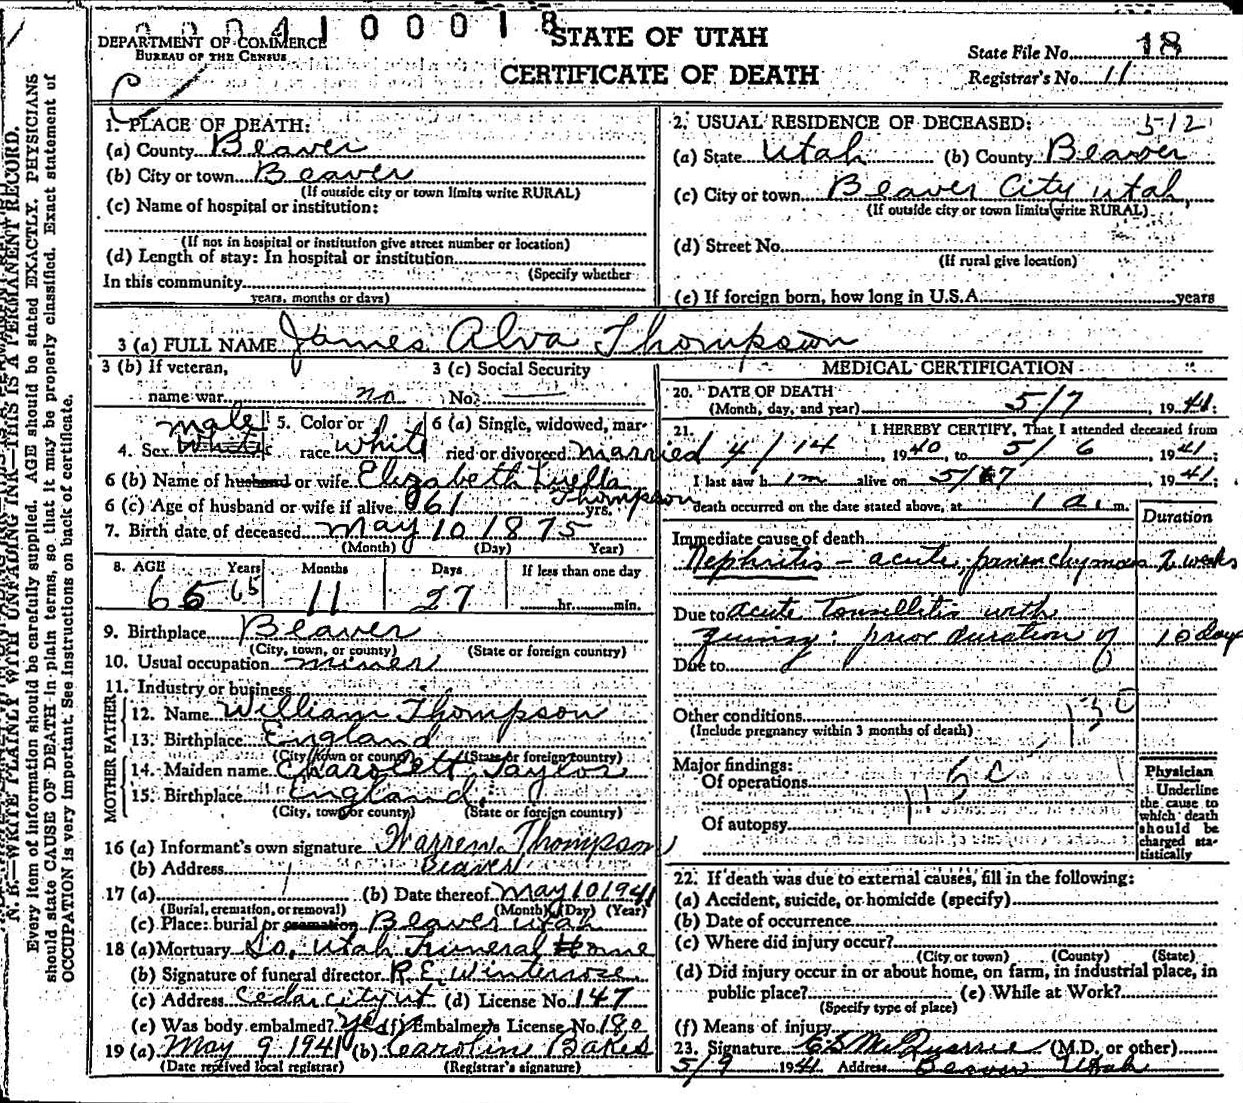 0004100018
DEPARTMENT OF COMMERCE
BUREAU OF THE CENSUS
STATE OF UTAH
CERTIFICATE OF DEATH
State File No. 18
Registrar's No. 11
N. B.—WRITE PLAINLY WITH UNFADING INK—THIS IS A PERMANENT RECORD.
Every item of information should be carefully supplied. AGE should be stated EXACTLY. PHYSICIANS
should state CAUSE OF DEATH in plain terms, so that it may be properly classified. Exact statement of
OCCUPATION is very important. See instructions on back of certificate.
1. PLACE OF DEATH:
(a) County Beaver
(b) City or town Beaver
(If outside city or town limits write RURAL)
(c) Name of hospital or institution:
(If not in hospital or institution give street number or location)
(d) Length of stay: In hospital or institution
(Specify whether
In this community
years, months or days)
2. USUAL RESIDENCE OF DECEASED: 512
(a) State Utah (b) County Beaver
(c) City or town Beaver City Utah
(If outside city or town limits write RURAL)
(d) Street No.
(If rural give location)
(e) If foreign born, how long in U.S.A. years
3 (a) FULL NAME James Alva Thompson
3 (b) If veteran, name war no
3 (c) Social Security No. —
4. Sex male White
5. Color or race white
6 (a) Single, widowed, married or divorced married
6 (b) Name of husband or wife Elizabeth Luella Thompson
6 (c) Age of husband or wife if alive 61 yrs.
7. Birth date of deceased May 10 1875
(Month) (Day) Year)
8. AGE Years Months Days If less than one day
65 65 11 27 hr. min.
9. Birthplace Beaver
(City, town, or county) (State or foreign country)
10. Usual occupation miner
11. Industry or business
FATHER
12. Name William Thompson
13. Birthplace England
(City, town or county) (State or foreign country)
MOTHER
14. Maiden name Charolett Taylor
15. Birthplace England
(City, town or county) (State or foreign country)
16 (a) Informant's own signature Warren Thompson
(b) Address Beaver
17 (a) (b) Date thereof May 10 1941
(Burial, cremation, or removal) (Month) (Day) (Year)
(c) Place: burial or cremation Beaver Utah
18 (a) Mortuary So. Utah Funeral Home
(b) Signature of funeral director R. E. Winterrose
(c) Address Cedar City Ut (d) License No. 147
(e) Was body embalmed? Yes (f) Embalmer's License No. 180
19 (a) May 9 1941 (b) Caroline Bakes
(Date received local registrar) (Registrar's signature)
MEDICAL CERTIFICATION
20. DATE OF DEATH
(Month, day, and year) 5/7, 1941:
21. I HEREBY CERTIFY, That I attended deceased from
4/14, 1940, to 5/6, 1941;
I last saw him alive on 5/7, 1941;
death occurred on the date stated above, at 1 a. m.
Duration
Immediate cause of death
Nephritis — acute, parenchymous 2 weeks
Due to acute Tonsillitis with
quinsy: prior duration of 10 days
Due to
Other conditions 130
(Include pregnancy within 3 months of death)
Major findings:
Of operations
115 c
Of autopsy
Physician
Underline the cause to which death should be charged statistically
22. If death was due to external causes, fill in the following:
(a) Accident, suicide, or homicide (specify)
(b) Date of occurrence
(c) Where did injury occur?
(City or town) (County) (State)
(d) Did injury occur in or about home, on farm, in industrial place, in
public place? (e) While at Work?
(Specify type of place)
(f) Means of injury
23. Signature McQuarrie (M.D. or other)
5/9 1941 Address Beaver Utah